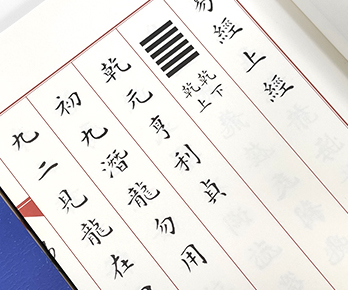 易經上經
乾下
乾上
乾元亨利貞
初九潛龍勿用
九二見龍在